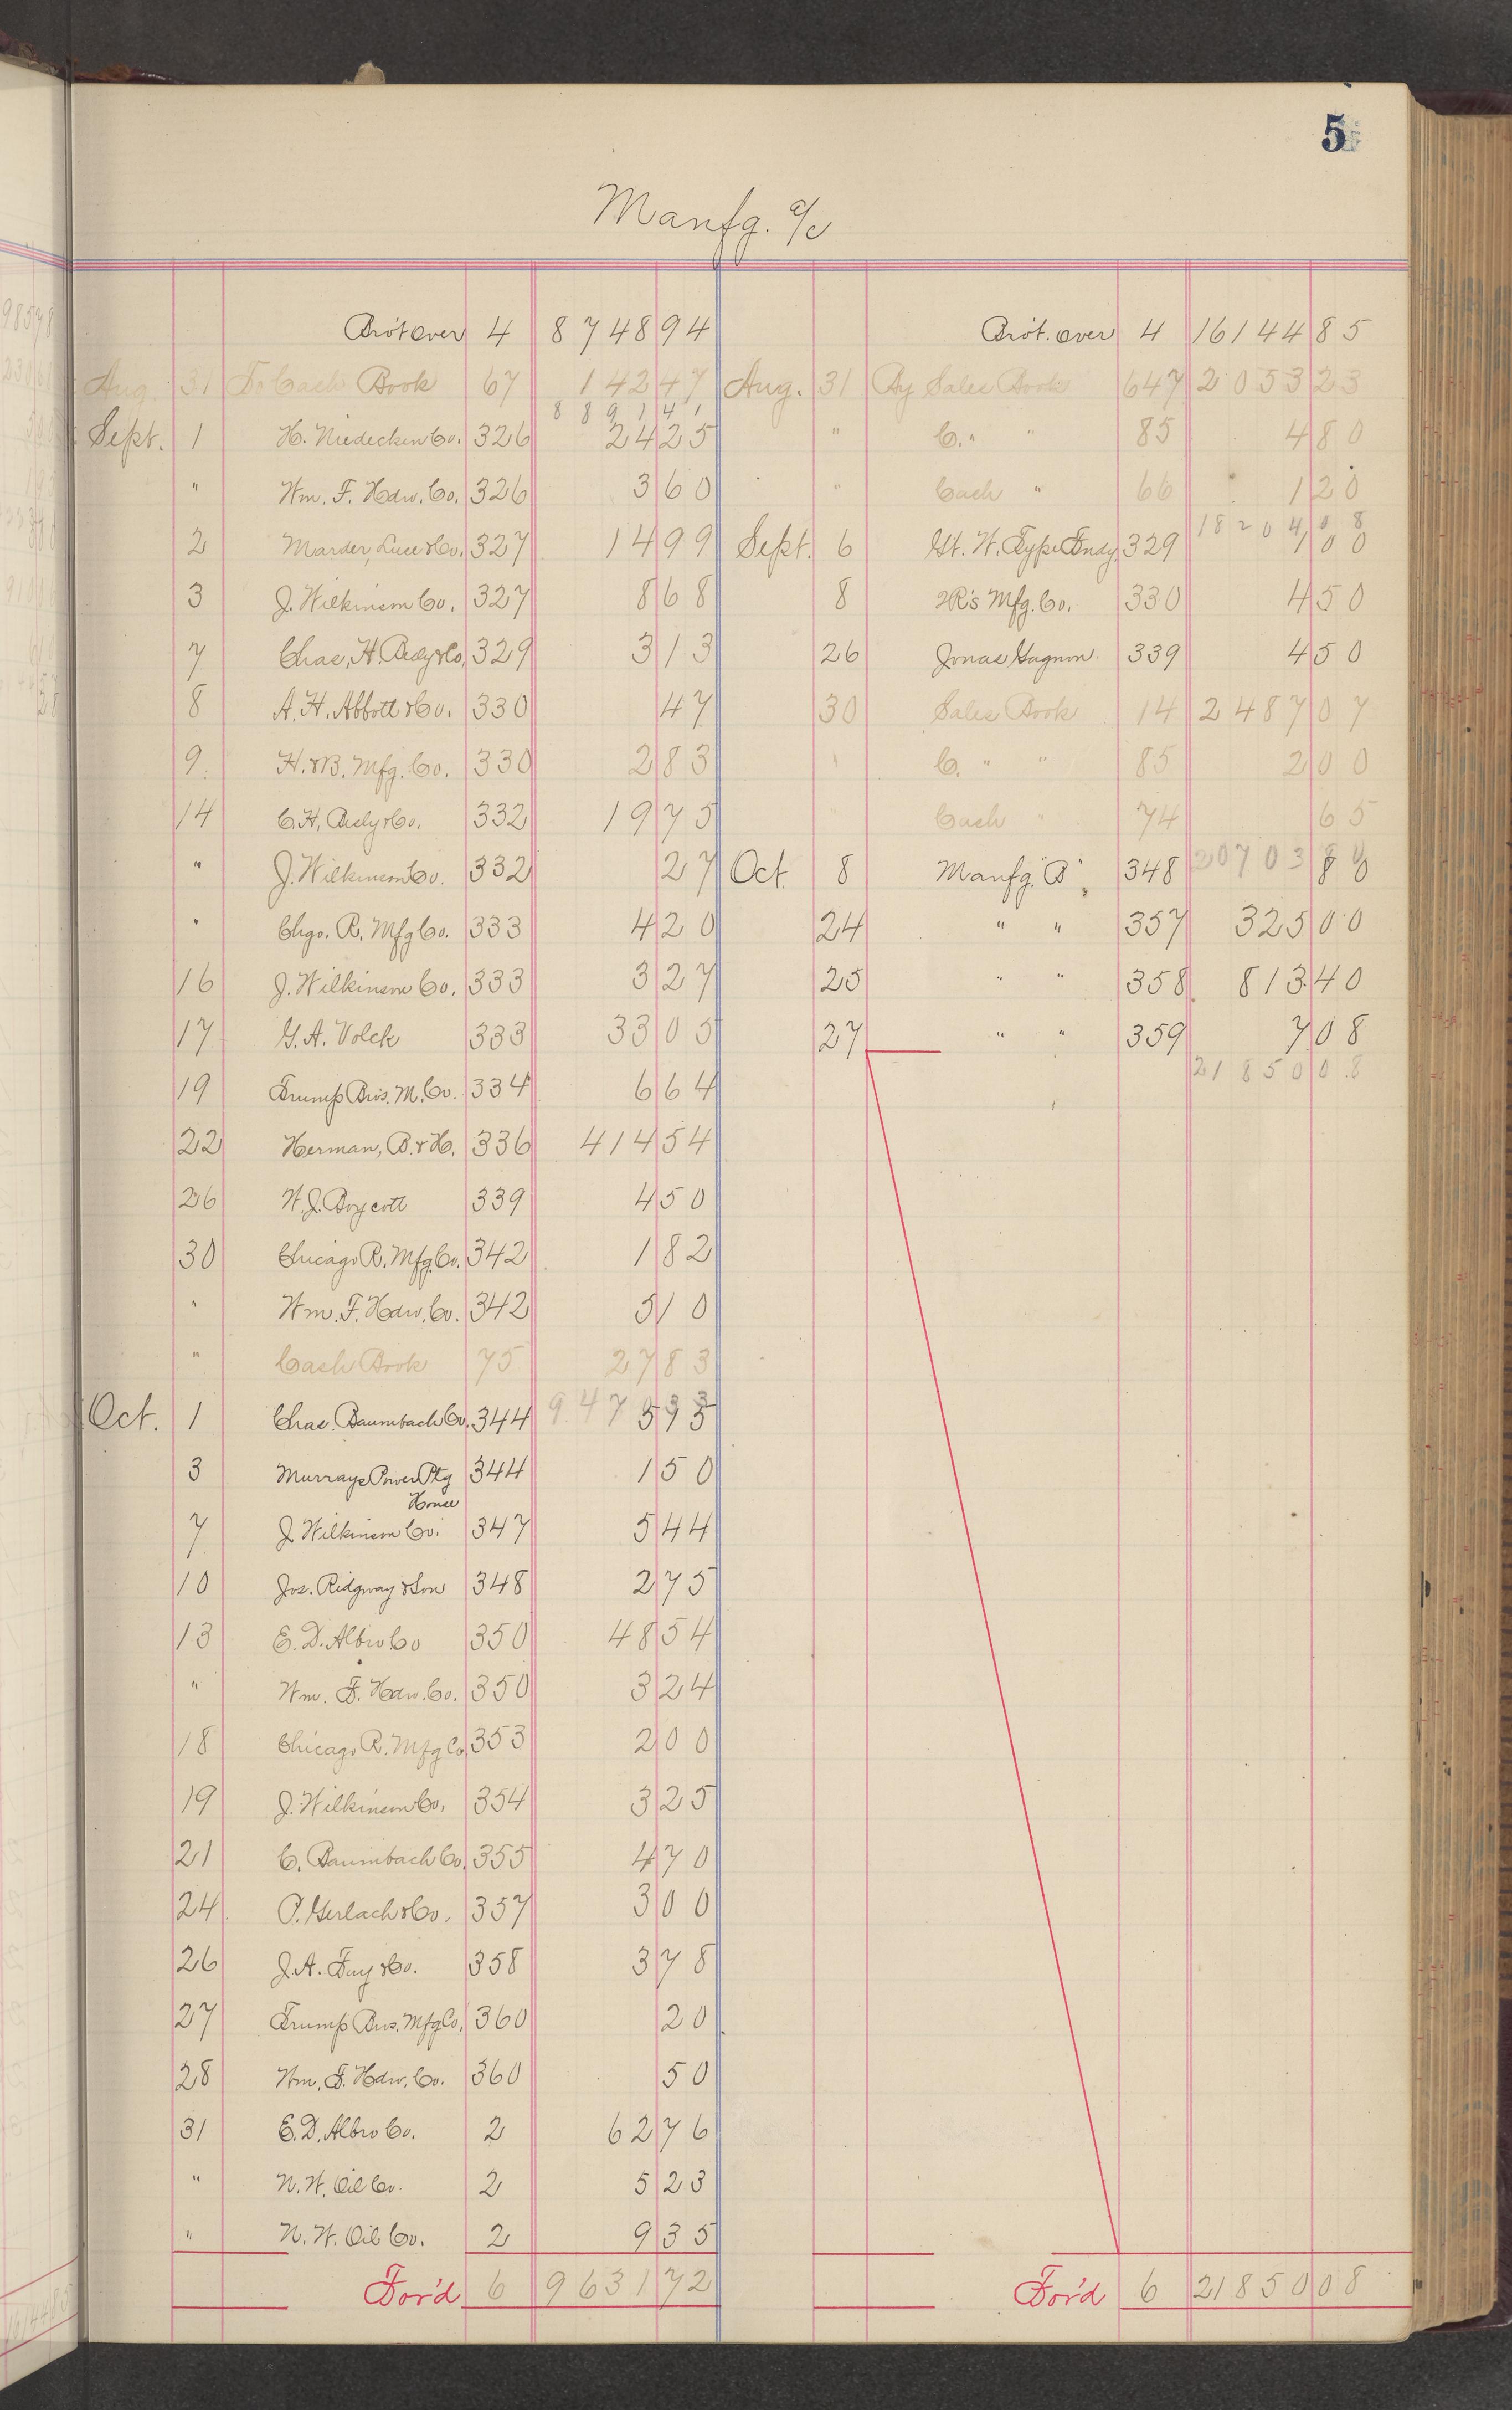 5
Manfg. a/c
Bro't over 4 8748 94
Aug. 31 To Cash Book 67 142 47
8891 41
Sept. 1 H. Niedecken Co. 326 24 25
" Wm. F. Hdw. Co. 326 3 60
2 Marder, Luce & Co. 327 14 99
3 J. Wilkinson Co. 327 8 68
7 Chas. H. Besly & Co. 329 3 13
8 A. H. Abbott & Co. 330 47
9 H. & B. Mfg. Co. 330 2 83
14 C. H. Besly & Co. 332 19 75
" J. Wilkinson Co. 332 27
" Chgo. R. Mfg Co. 333 4 20
16 J. Wilkinson Co. 333 3 27
17 G. A. Volck 333 33 05
19 Trump Bros. M. Co. 334 6 64
22 Herman, B. & H. 336 414 54
26 W. J. Boycott 339 4 50
30 Chicago R. Mfg. Co. 342 1 82
" Wm. F. Hdw. Co. 342 5 10
" Cash Book 75 27 83
947 0 33
Oct. 1 Chas. Baumbach Co. 344 5 95
3 Murrays Power Ptg House 344 1 50
7 J. Wilkinson Co. 347 5 44
10 Jos. Ridgway & Son 348 2 75
13 E. D. Albro Co 350 48 54
" Wm. F. Hdw. Co. 350 3 24
18 Chicago R. Mfg Co 353 2 00
19 J. Wilkinson Co. 354 3 25
21 C. Baumbach Co. 355 4 70
24 P. Gerlach & Co. 357 3 00
26 J. A. Fay & Co. 358 3 78
27 Trump Bros. Mfg Co. 360 20
28 Wm. F. Hdw. Co. 360 50
31 E. D. Albro Co. 2 62 76
" N. W. Oil Co. 2 5 23
" N. W. Oil Co. 2 9 35
For'd 6 9631 72
Bro't. over 4 16144 85
Aug. 31 By Sales Book 647 2053 23
" C. " " 85 4 80
" Cash " 66 1 20
18204 08
Sept. 6 Gt. W. Type Fndy. 329 1 00
8 Mfg. Co. 330 4 50
26 Jonas Gagnon 339 4 50
30 Sales Book 14 2487 07
" C. " " 85 2 00
" Cash " 74 65
20703 80
Oct. 8 Manfg. "B" 348 80
24 " " 357 325 00
25 " " 358 813 40
27 " " 359 7 08
21850 08
For'd 6 21850 08